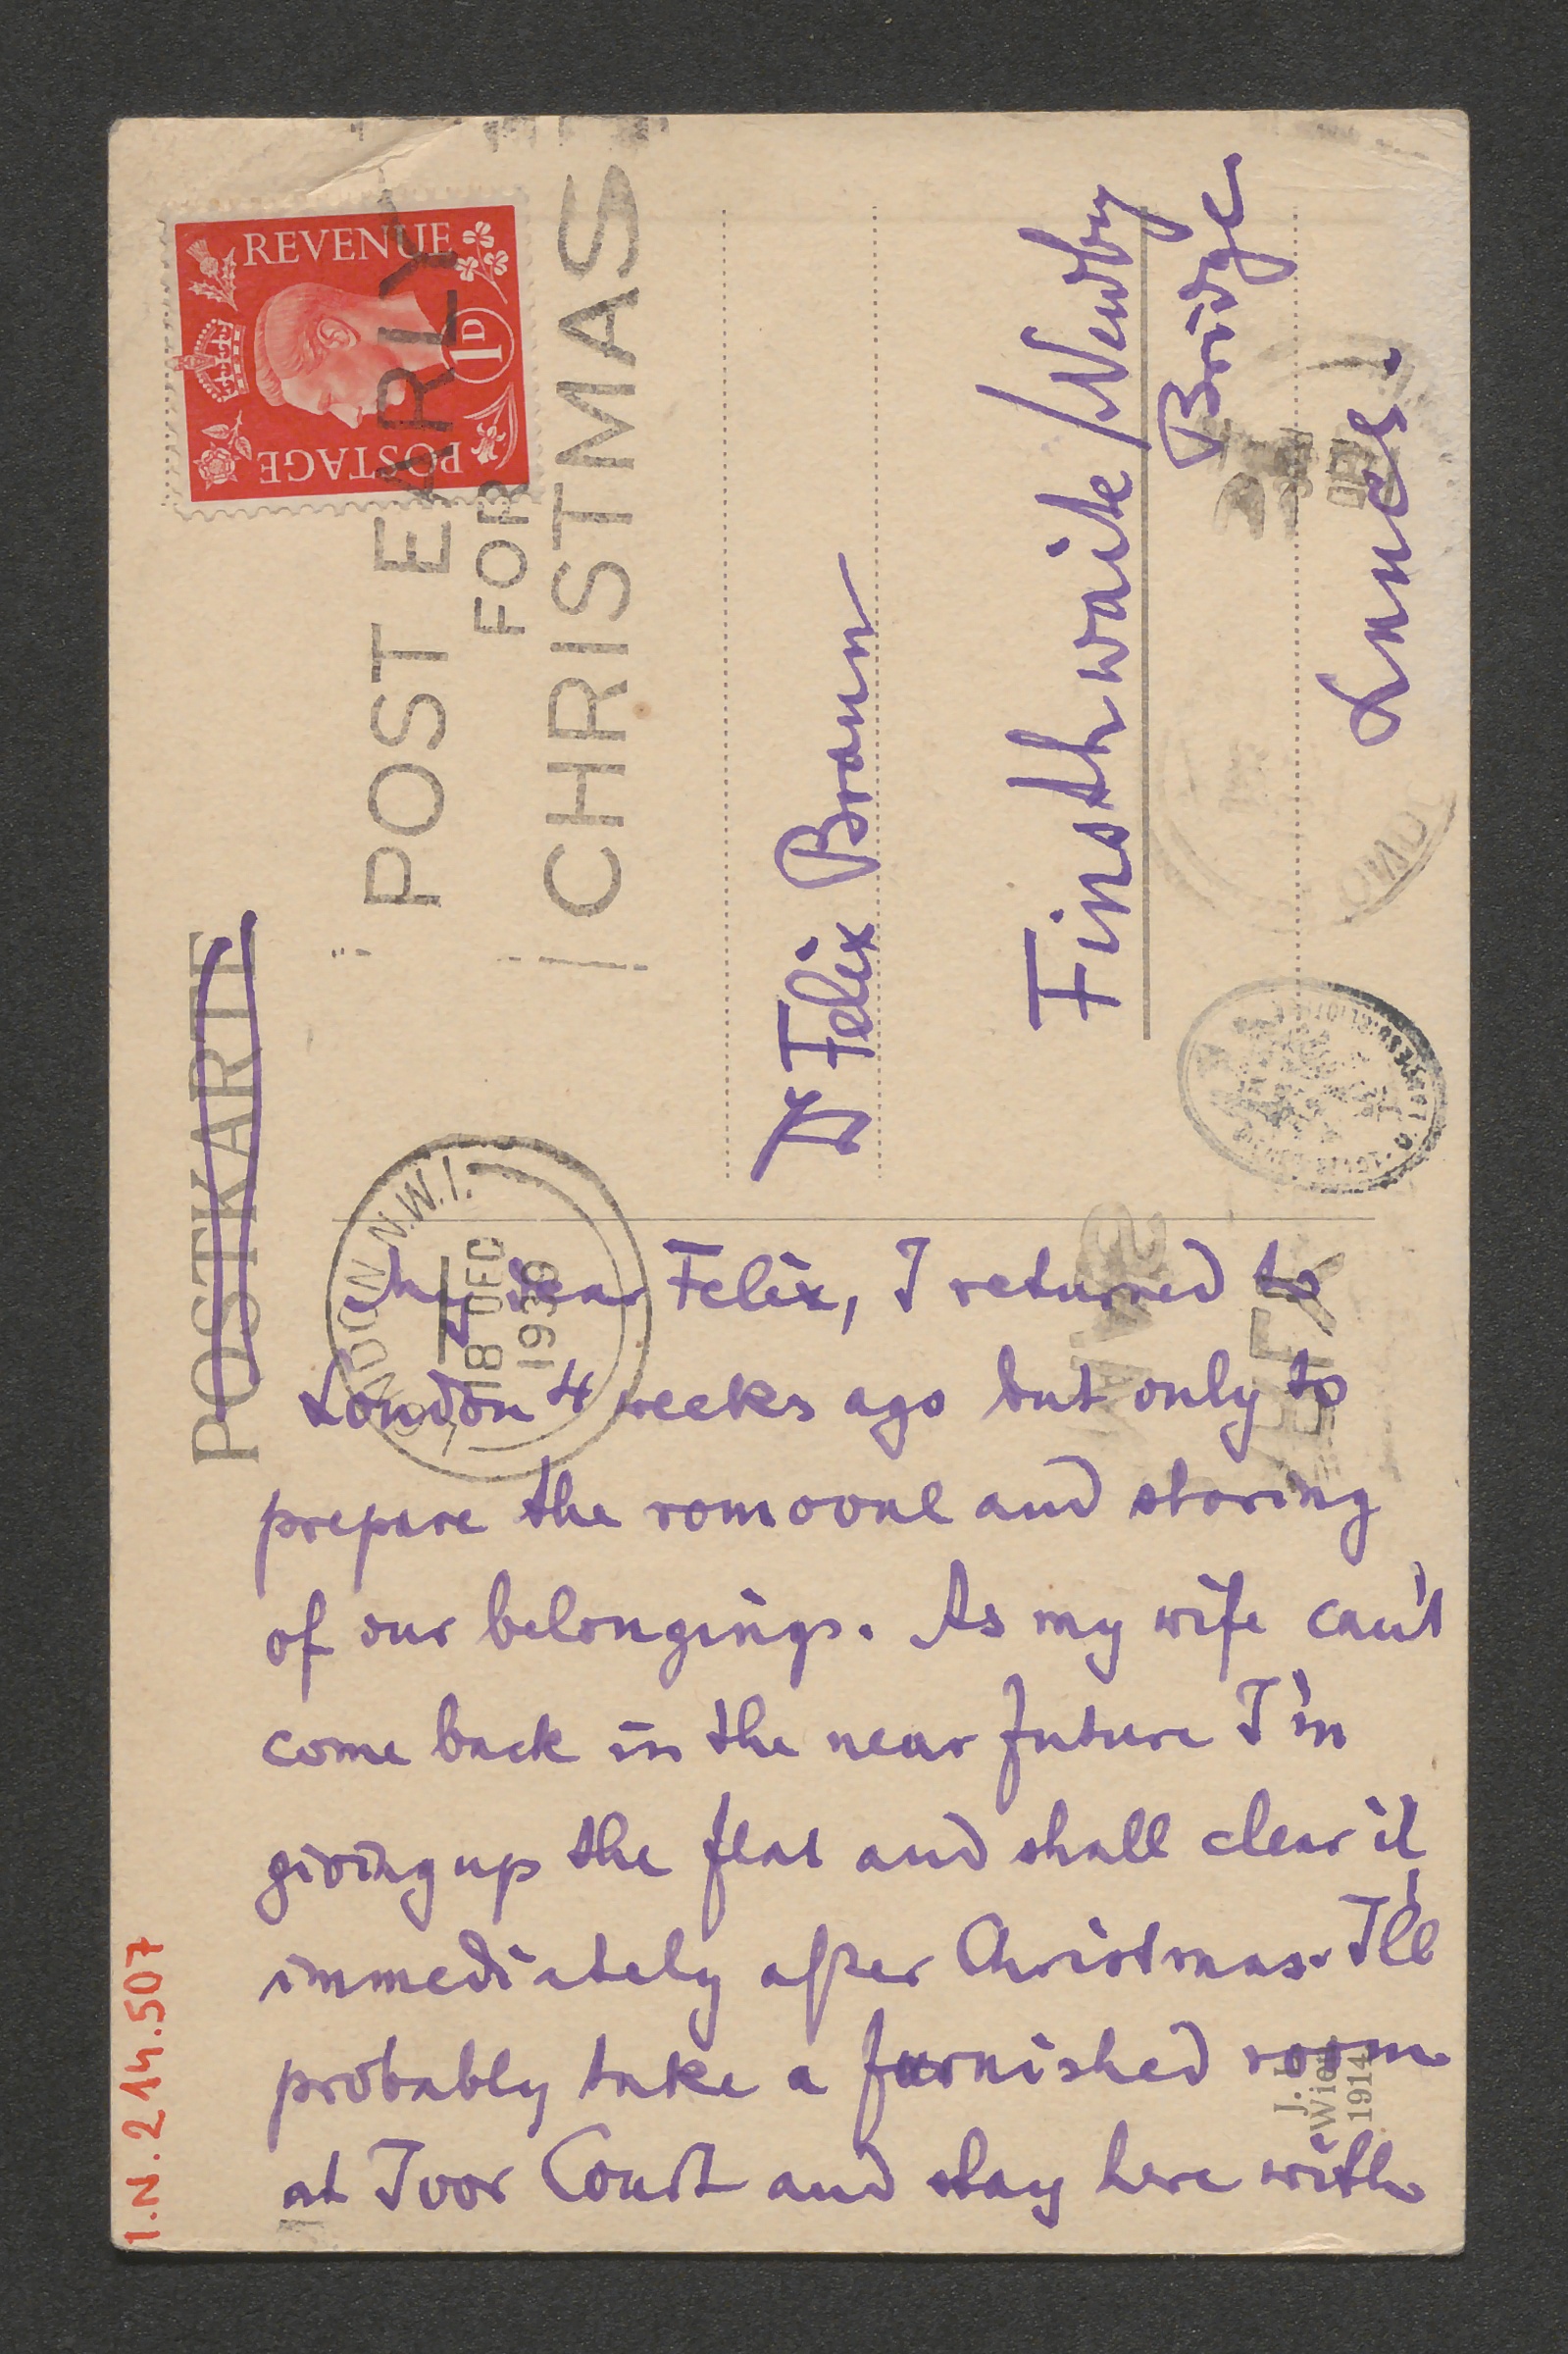 POSTKARTE
REVENUE
POSTAGE
1D
POST EARLY
FOR
CHRISTMAS
LONDON N.W.1.
18 DEC
1939
Dr Felix Braun
Finsthwaite/Newby
Bridge
Lancs.
My dear Felix, I returned to
London 4 weeks ago but only to
prepare the romoval and storing
of our belongings. As my wife can't
come back in the near future I'm
giving up the flat and shall clear it
immediately after Christmas. I'll
probably take a furnished room
at Ivor Court and stay here with
J.
Wien
1914
I.N. 214.507